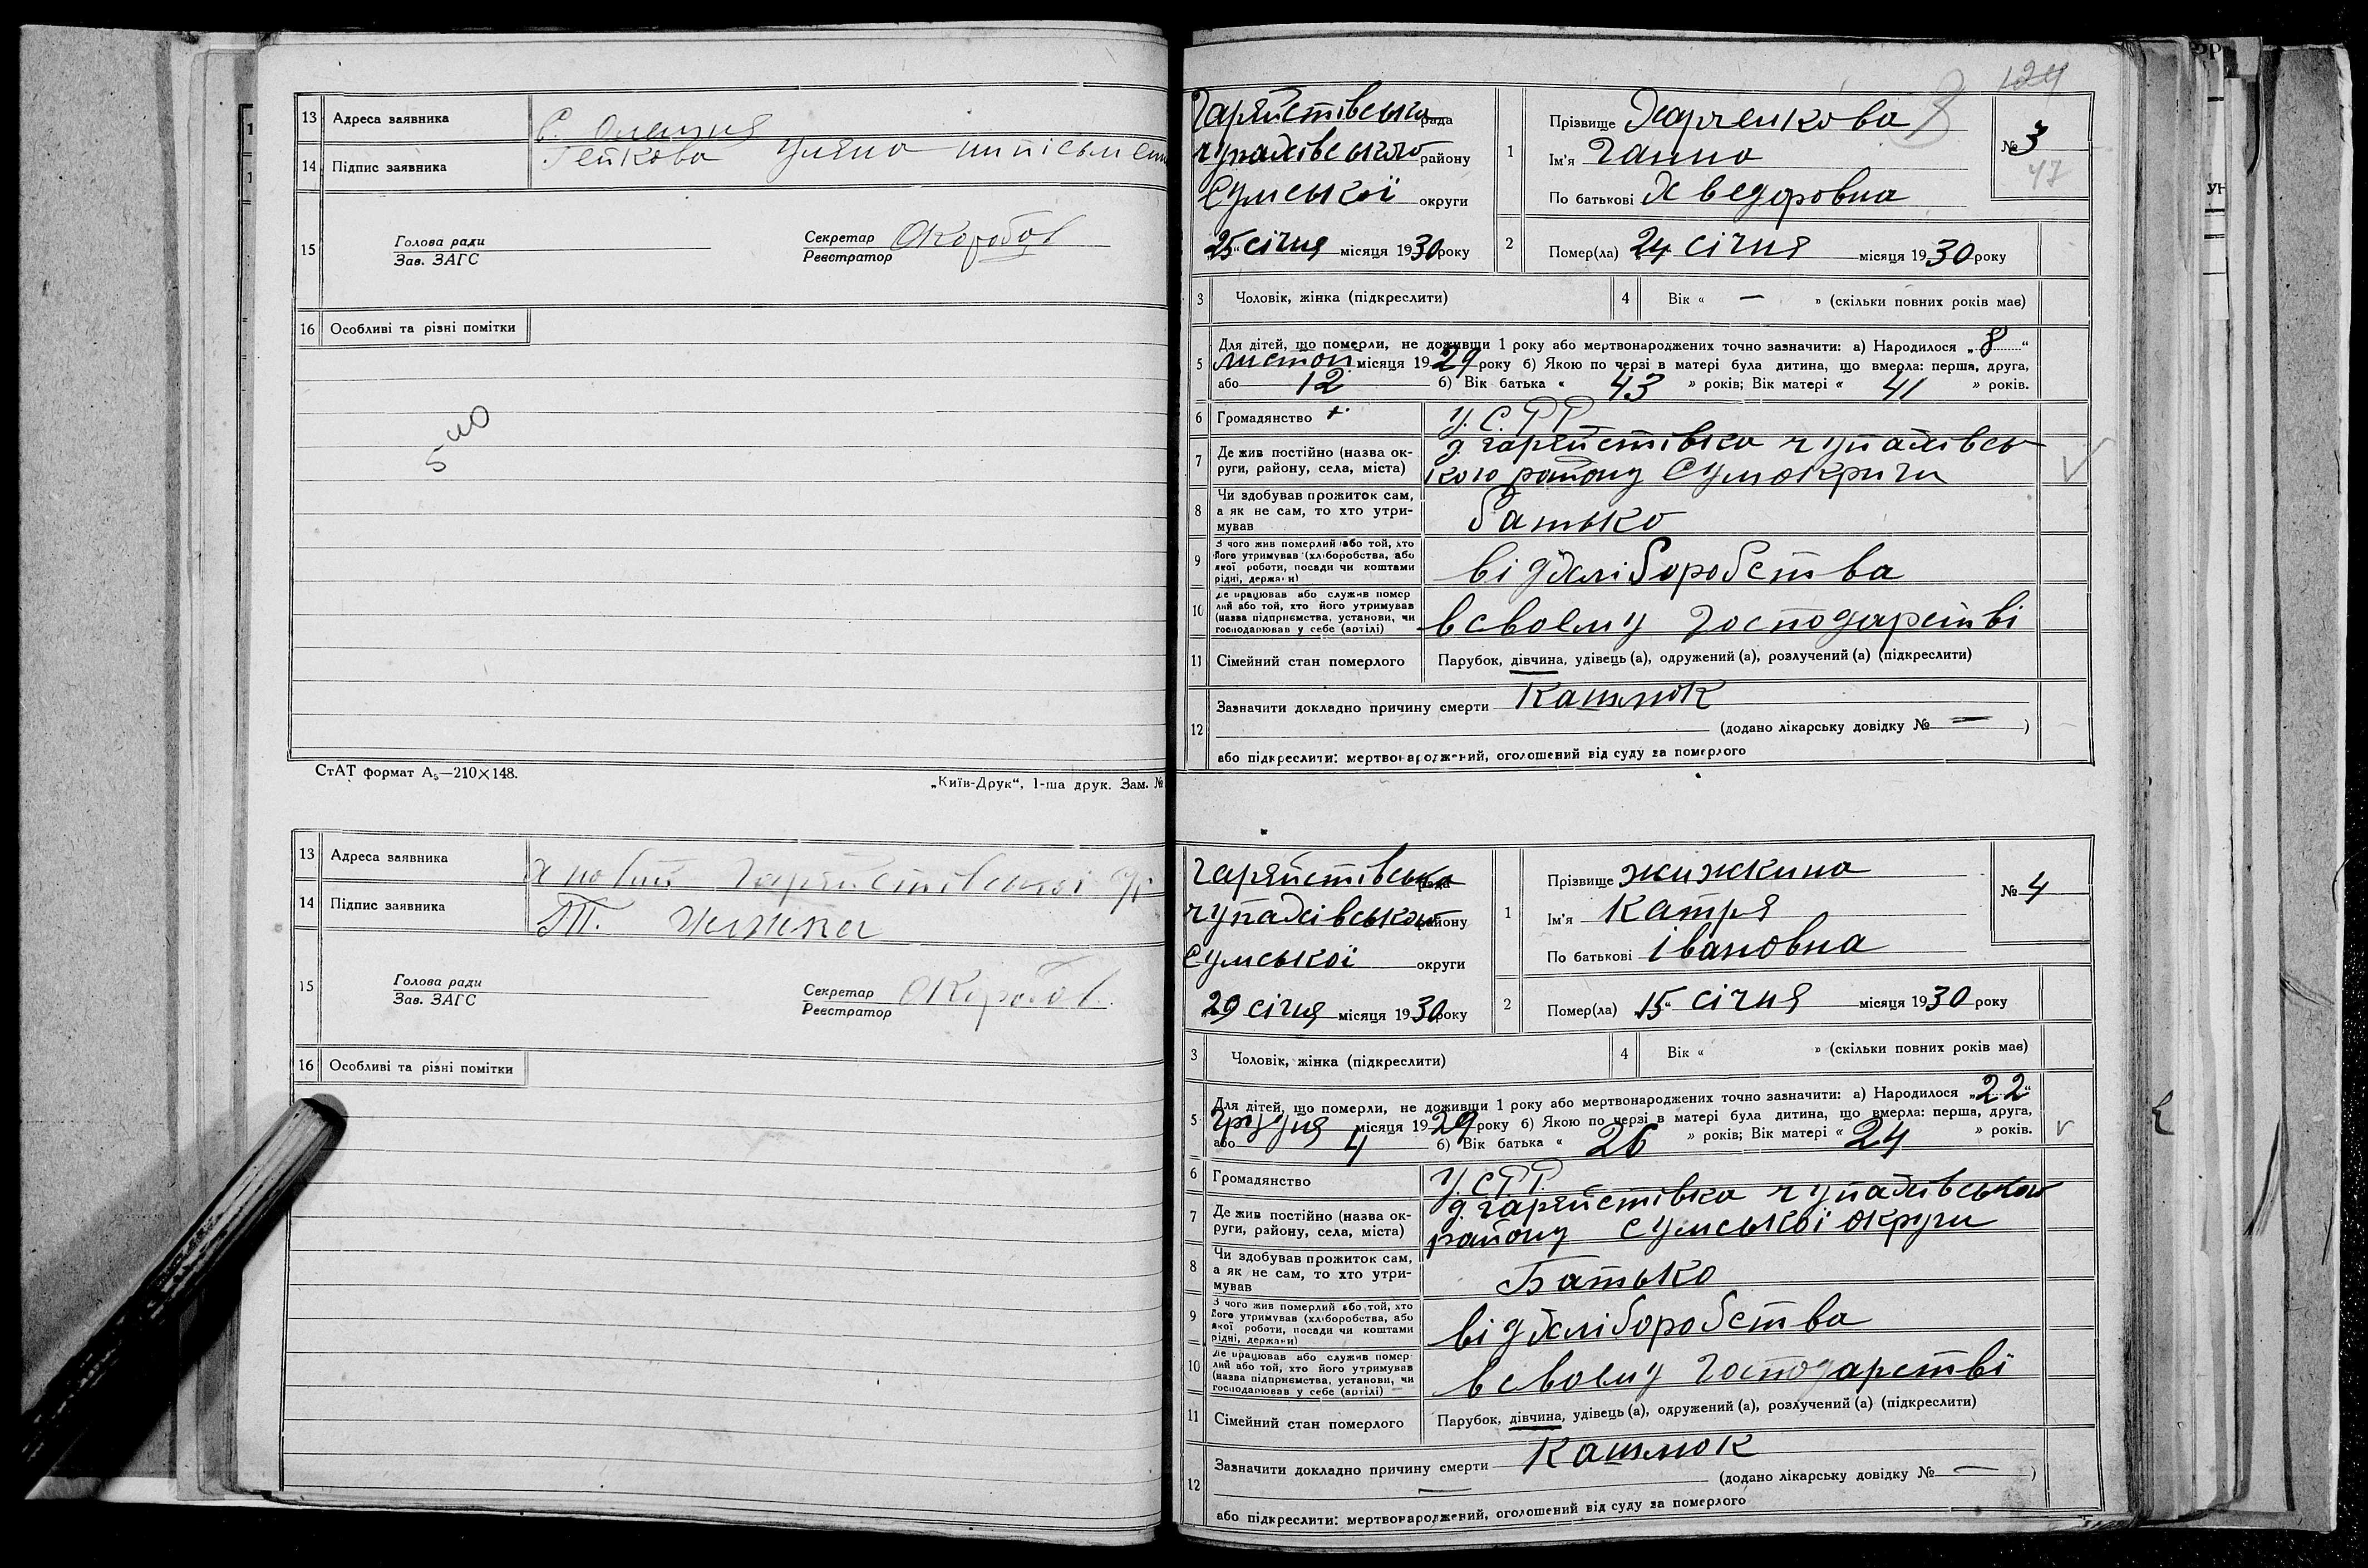 13 Адреса заявника с.
14 Підпис заявника Гейкова Уляна
15 Голова ради
Зав. ЗАГС
Секретар Коробов
Реєстратор
16 Особливі та різні помітки
СтАТ формат А₅—210×148.
„Київ-Друк“, 1-ша друк. Зам. №
13 Адреса заявника
14 Підпис заявника Т. Жижка
15 Голова ради
Зав. ЗАГС
Секретар Коробов
Реєстратор
16 Особливі та різні помітки
124
рада
чупахівського району
Сумської округи
„25“ січня місяця 1930 року
1 Прізвище Харченкова
Ім'я Ганна
По батькові Хведоровна
№ 3
47
2 Помер(ла) 24 січня місяця 1930 року
3 Чоловік, жінка (підкреслити)
4 Вік « — » (скільки повних років має)
5 Для дітей, що померли, не доживши 1 року або мертвонароджених точно зазначити: а) Народилося „8“
листоп. місяця 1929 року б) Якою по черзі в матері була дитина, що вмерла: перша, друга,
або 12 б) Вік батька « 43 » років; Вік матері « 41 » років.
6 Громадянство У.С.Р.Р
7 Де жив постійно (назва ок-
руги, району, села, міста)
чупахівсь
кого району Сумокриги
8 Чи здобував прожиток сам,
а як не сам, то хто утри-
мував
батько
9 З чого жив померлий або той, хто
його утримував (хліборобства, або
якої роботи, посади чи коштами
рідні, держави)
від хліборобства
10 Де працював або служив помер
лий або той, хто його утримував
(назва підприємства, установи, чи
господарював у себе (артілі)
в своему господарстві
11 Сімейний стан померлого Парубок, дівчина, удівець (а), одружений (а), розлучений (а) (підкреслити)
12 Зазначити докладно причину смерти Кашлюк
(додано лікарську довідку № — )
або підкреслити: мертвонароджений, оголошений від суду за померлого
рада
чупахівського району
Сумської округи
„29 січня місяця 1930 року
1 Прізвище жижкина
Ім'я Катря
По батькові івановна
№ 4
2 Помер(ла) 15“ січня місяця 1930 року
3 Чоловік, жінка (підкреслити)
4 Вік « » (скільки повних років має)
5 Для дітей, що померли, не доживши 1 року або мертвонароджених точно зазначити: а) Народилося „22“
грудня місяця 1929 року б) Якою по черзі в матері була дитина, що вмерла: перша, друга,
або 4 б) Вік батька « 26 » років; Вік матері « 24 » років.
6 Громадянство У.С.Р.Р.
7 Де жив постійно (назва ок-
руги, району, села, міста)
чупахівського
району Сумської округи
8 Чи здобував прожиток сам,
а як не сам, то хто утри-
мував
Батько
9 З чого жив померлий або той, хто
його утримував (хліборобства, або
якої роботи, посади чи коштами
рідні, держави)
від хліборобства
10 Де працював або служив помер-
лий або той, хто його утримував
(назва підприємства, установи, чи
господарював у себе (артілі)
в своему господарстві
11 Сімейний стан померлого Парубок, дівчина, удівець (а), одружений (а), розлучений (а) (підкреслити)
12 Зазначити докладно причину смерти Кашлюк
(додано лікарську довідку № — )
або підкреслити: мертвонароджений, оголошений від суду за померлого